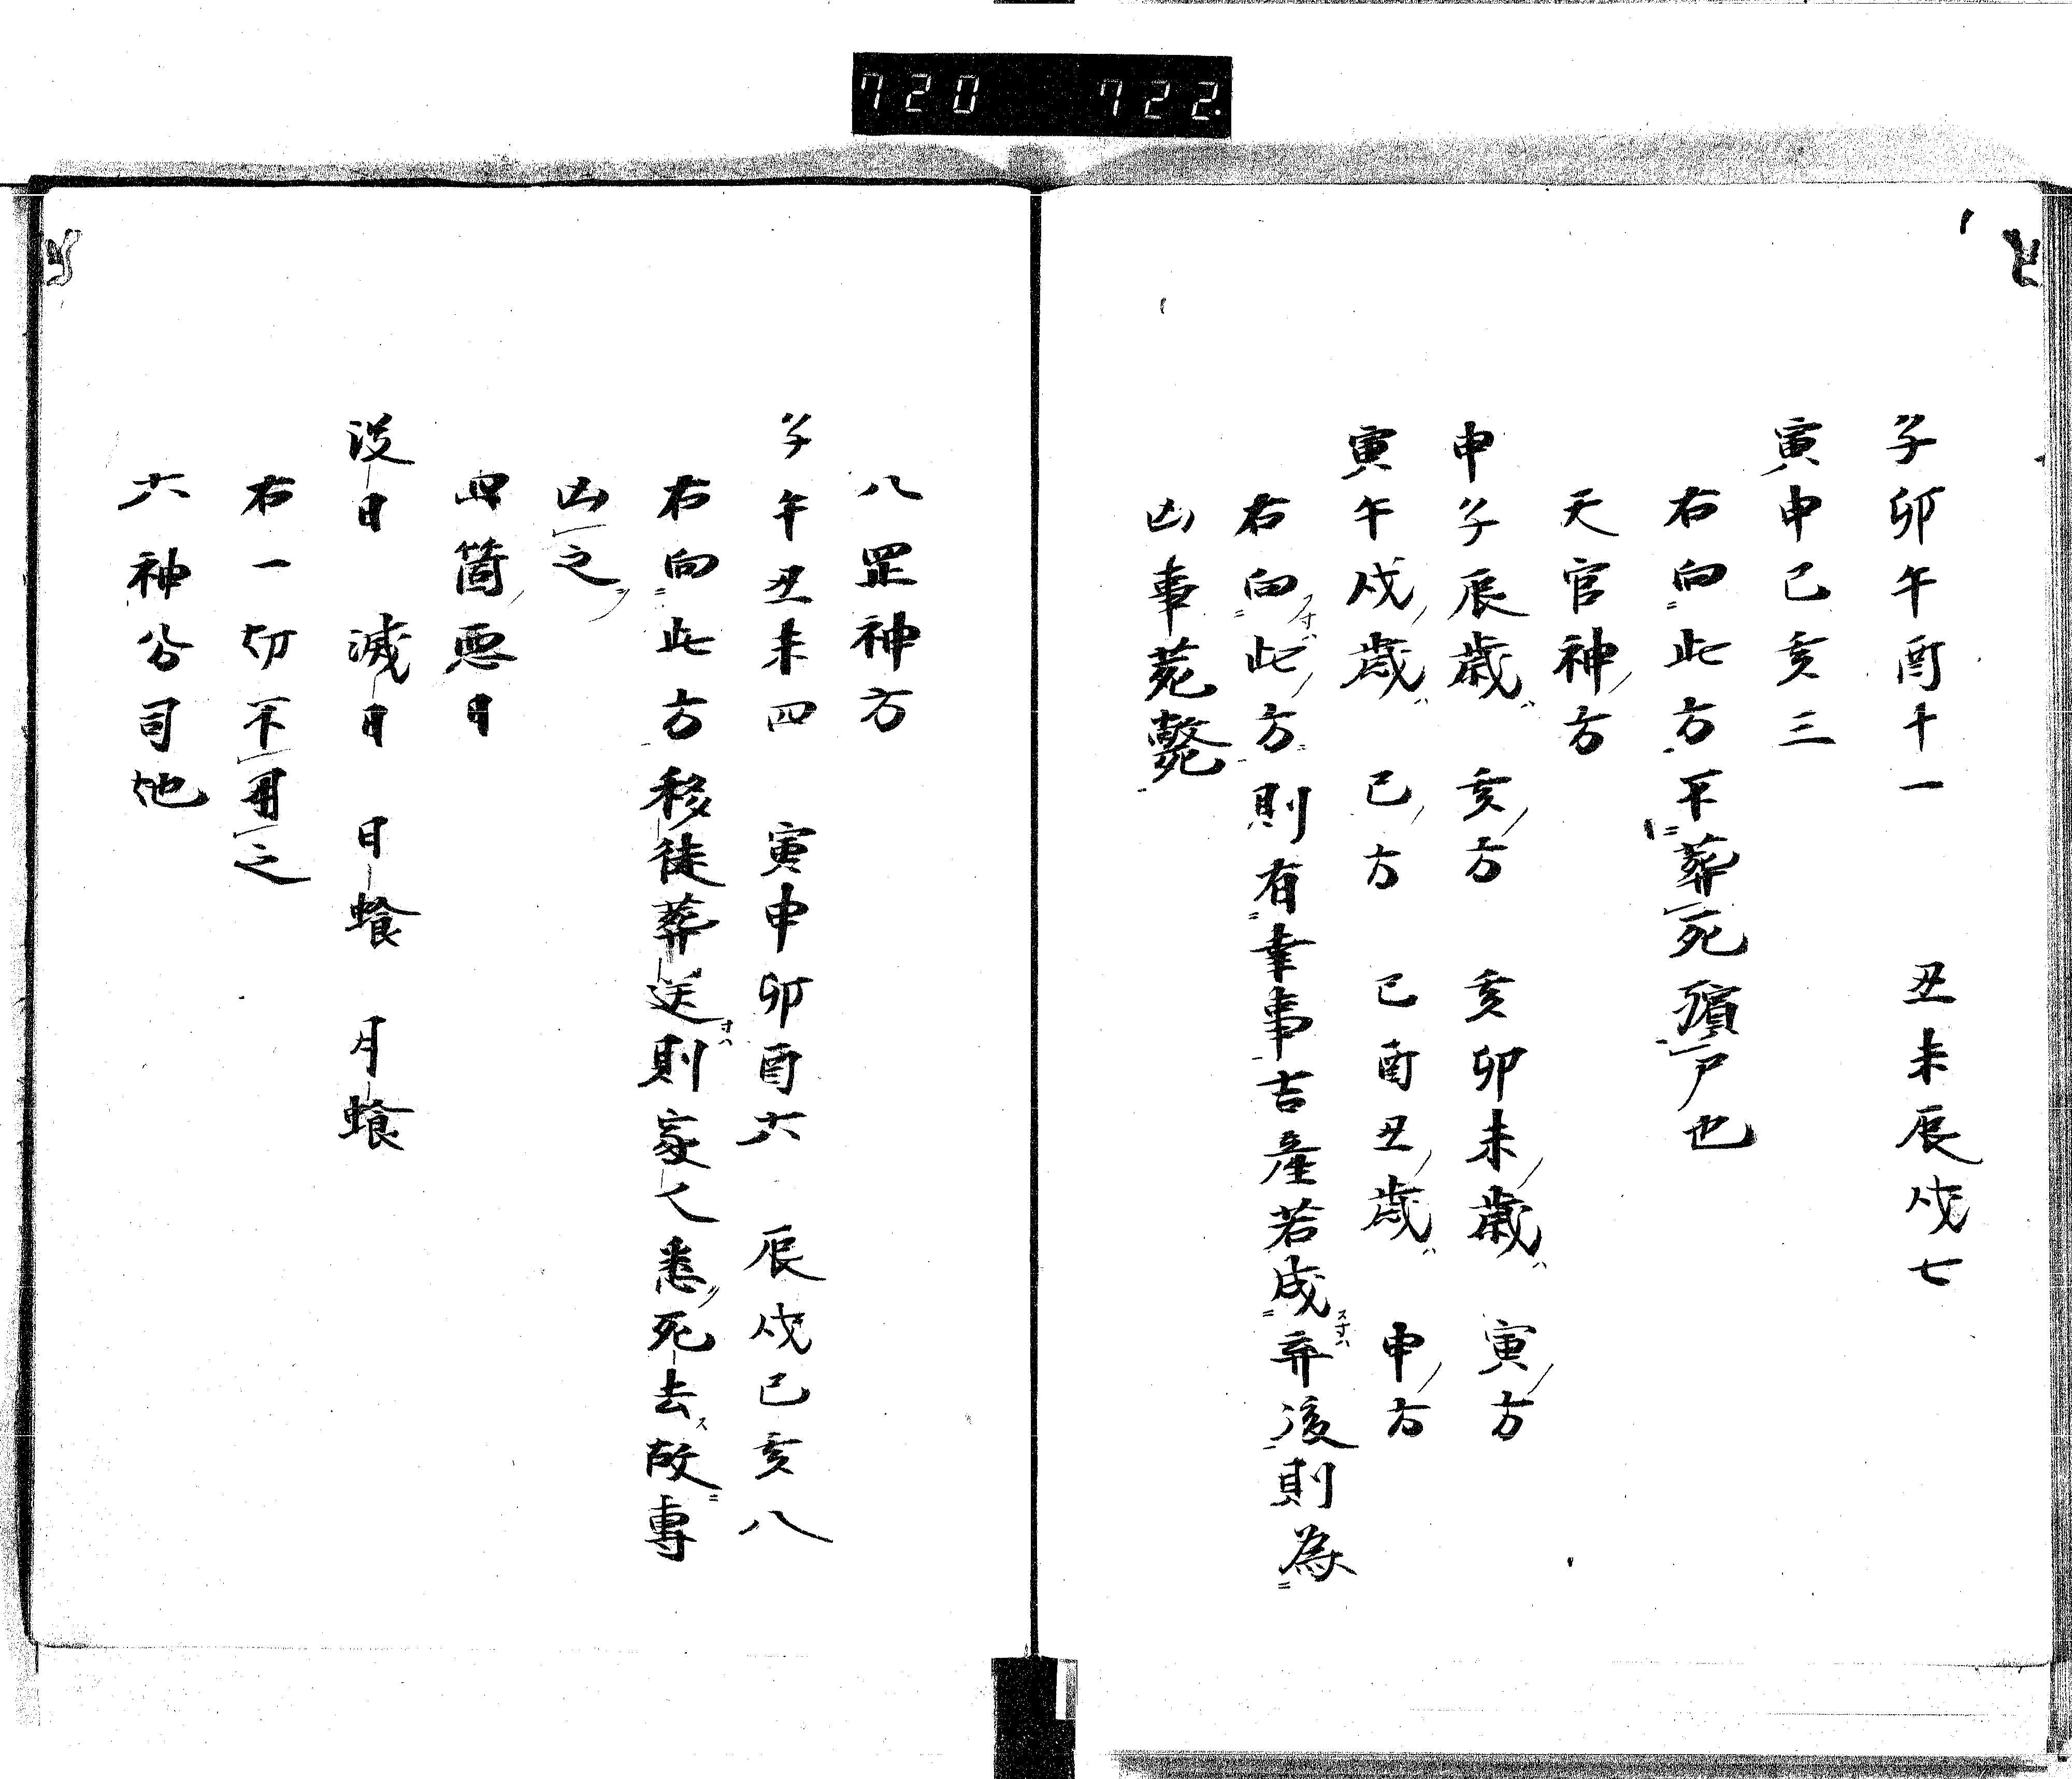 720 722
子卯午酉十一 丑未辰戌七
寅申巳亥三
右向此方不葬死殯尸也
天官神方
申子辰歳ハ 亥方 亥卯未歳ハ 寅方
寅午戌歳ハ 巳方 巳酉丑歳ハ 申方
右向此方則有幸事吉産若成弃後則為
凶事
八罡神方
子午丑未四 寅申卯酉六 辰戌巳亥八
右向此方移徒葬送則家人悉死去故専
凶之
四箇悪日
没日 滅日 日蝕 月蝕
右一切不用之
六神分司地